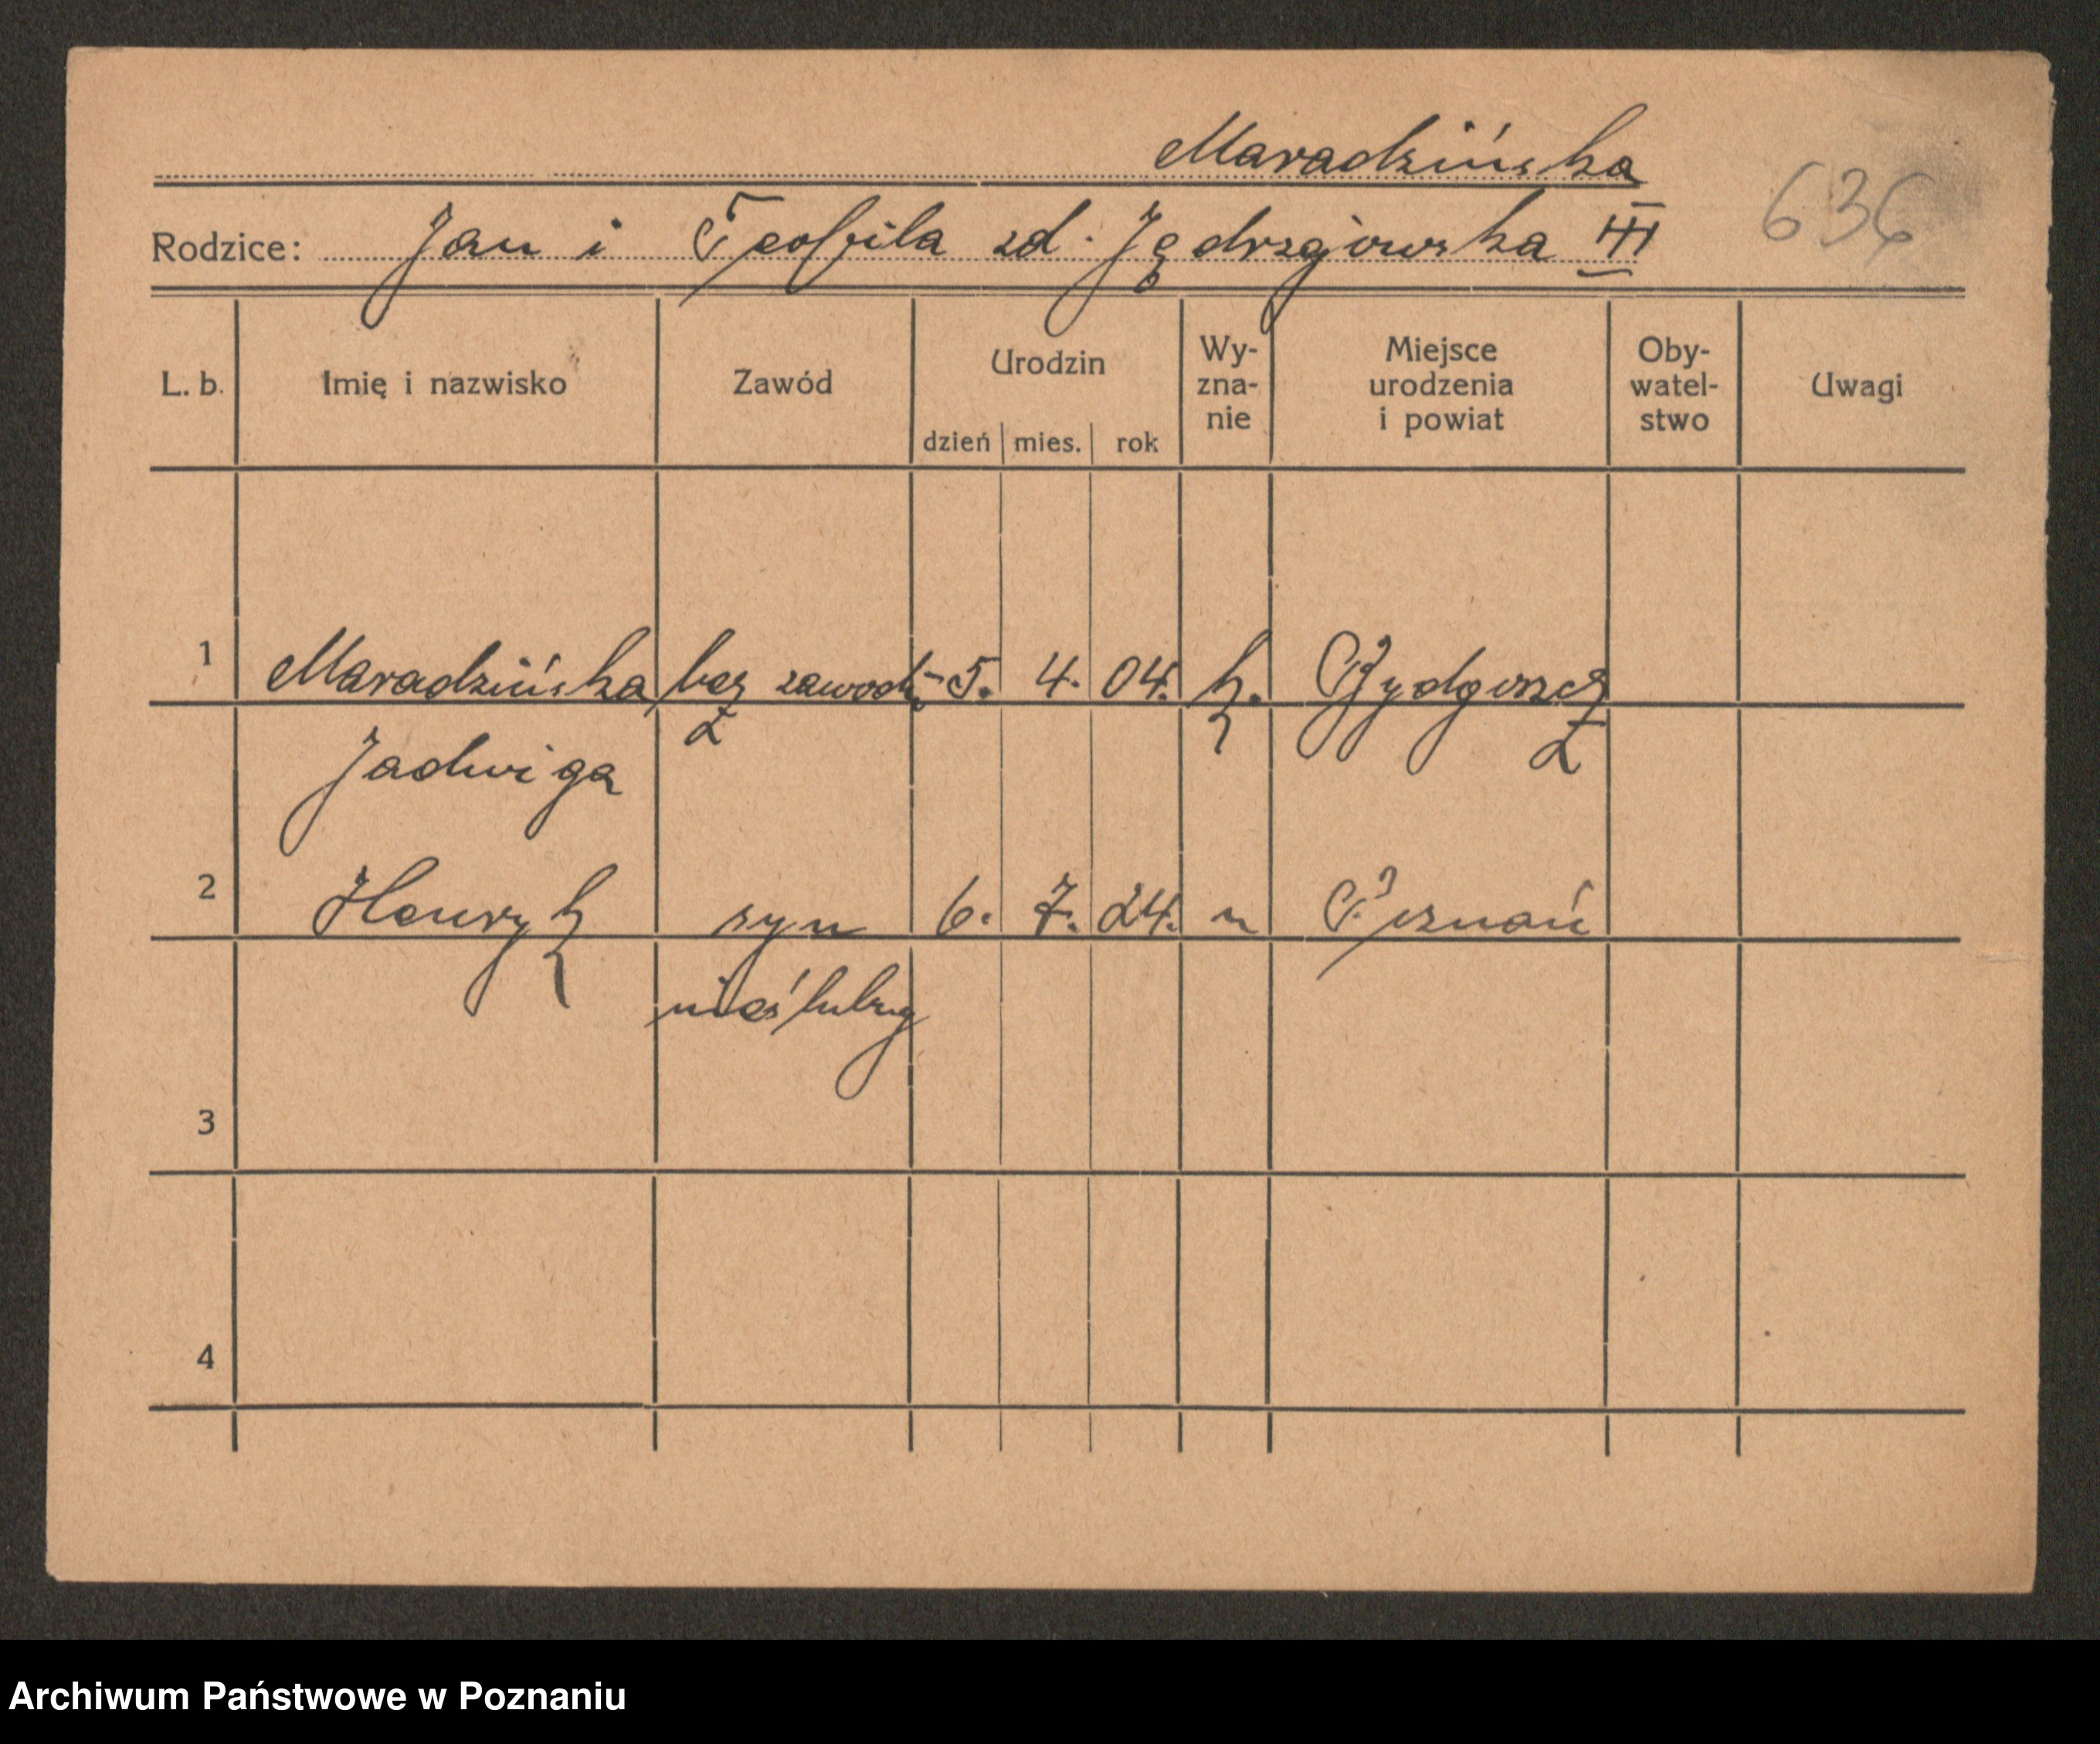 Maradzińska
Rodzice: Jan i Teofila zd. Jędrzejowska III 636
L. b. Imię i nazwisko Zawód Urodzin dzień mies. rok Wy-zna-nie Miejsce urodzenia i powiat Oby-watel-stwo Uwagi
1 Maradzińska bez zawodu 5. 4. 04. k. Bydgoszcz
Jadwiga
2 Henryk syn 6. 7. 24. " Poznań
nieślubny
3
4
Archiwum Państwowe w Poznaniu